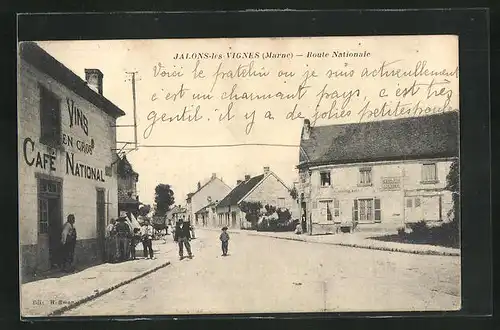 JALONS-les-VIGNES (Marne) — Route Nationale
Voici le patelin ou je suis actuellement
c'est un charmant pays, c'est très
gentil. il y a de jolies
VINS
EN GROS
CAFÉ NATIONAL